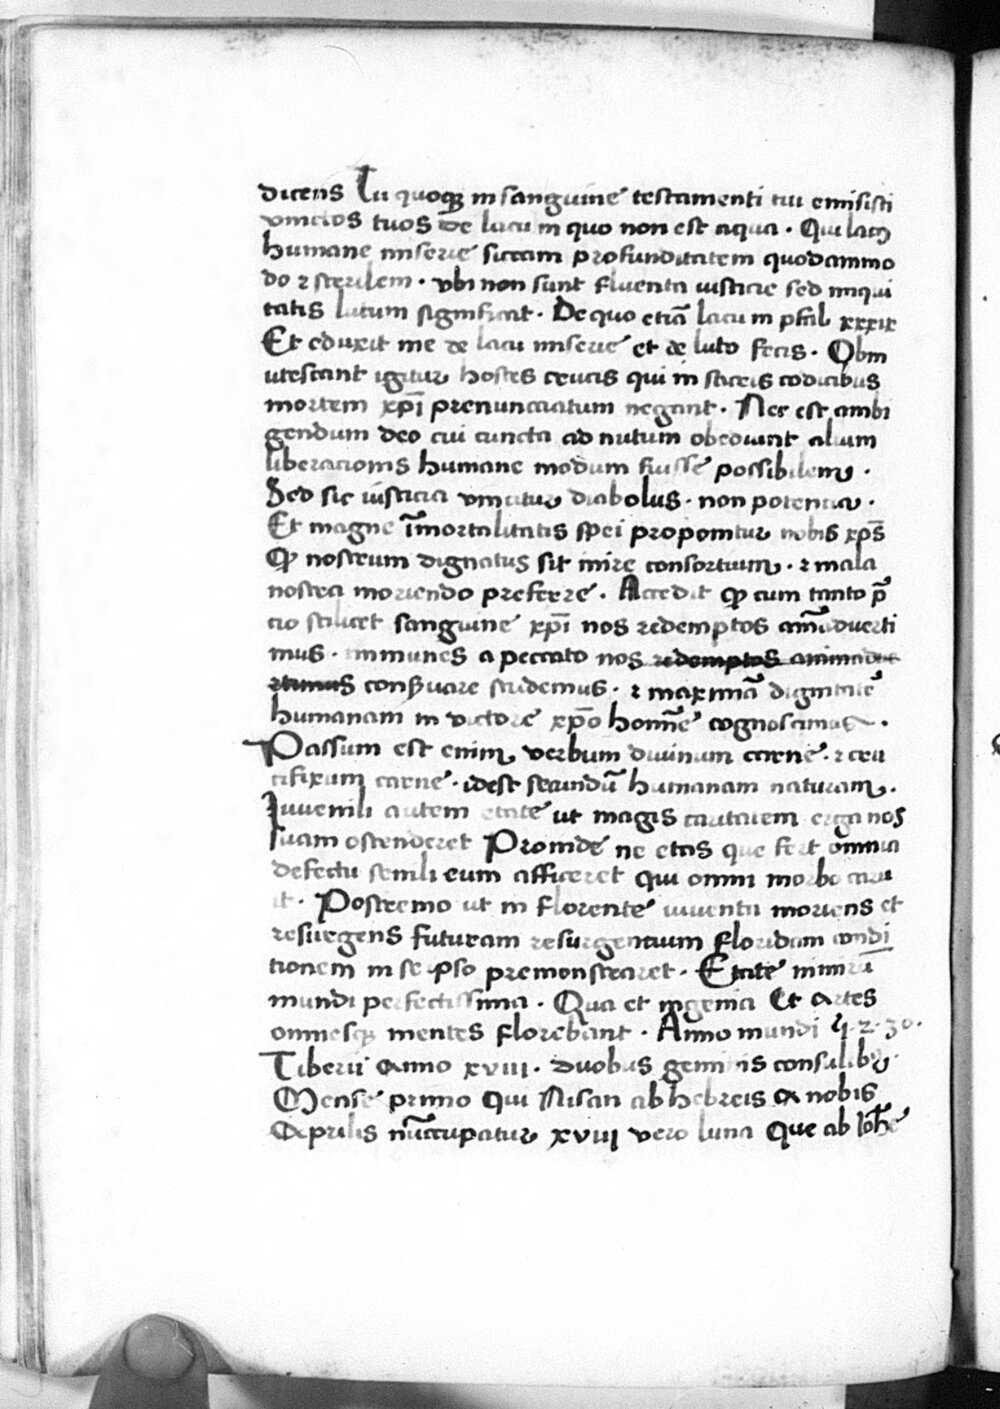 dicens Tu quoqꝫ in sanguine testamenti tui emisisti
vinctos tuos de lacu in quo non est aqua · Qui lacus
humane miserie siccam profunditatem quodammo
do ⁊ sterilem · vbi non sunt fluenta iusticie sed iniqui
tatis lutum significat · De quo etiā lacu in psal xxxix
Et eduxit me de lacu miserie et de luto fecis · Obm
utescant igitur hostes crucis qui in sacris codicibus
mortem xp̄i prenunciatum negant · Nec est ambi
gendum deo cui cuncta ad nutum obediunt alium
liberacionis humane modum fuisse possibilem ·
Sed sic iusticia vincitur diabolus · non potencia ·
Et magne īmortalitatis spei proponitur nobis xp̄s
Qp nostrum dignatus sit inire consortium · ⁊ mala
nostra moriendo preferre · Accedit qp cum tanto p̄
cio scilicet sanguine xp̄i nos redemptos aīmaduerti
mus · immunes a peccato nos redemptos animadue
rtimus conẞuare studemus · ⁊ maximā dignitatē
humanam in victore xp̄o homīe cognoscimus ·
Passum est enim verbum diuinum carne · ⁊ cru
cifixum carne · idest secundū humanam naturam ·
Iuuenili autem etate ut magis caritatem erga nos
suam ostenderet Proinde ne etas que fert omnia
defectu senili eum afficeret qui omni morbo caru
it · Postremo ut in florente iuuenta moriens et
resurgens futuram resurgentium floridam condi
tionem in se ipso premonstraret · Etate nimirū
mundi perfectissima · Qua et ingenia Et artes
omnesqꝫ mentes florebant · Anno mundi 4·2·30·
Tiberii Anno xviii · duobus geminis consulibꝫ ·
Mense primo Qui Nisan ab hebreis A nobis
Aprilis nūccupatur xviii vero luna Que ab Ioh̄e